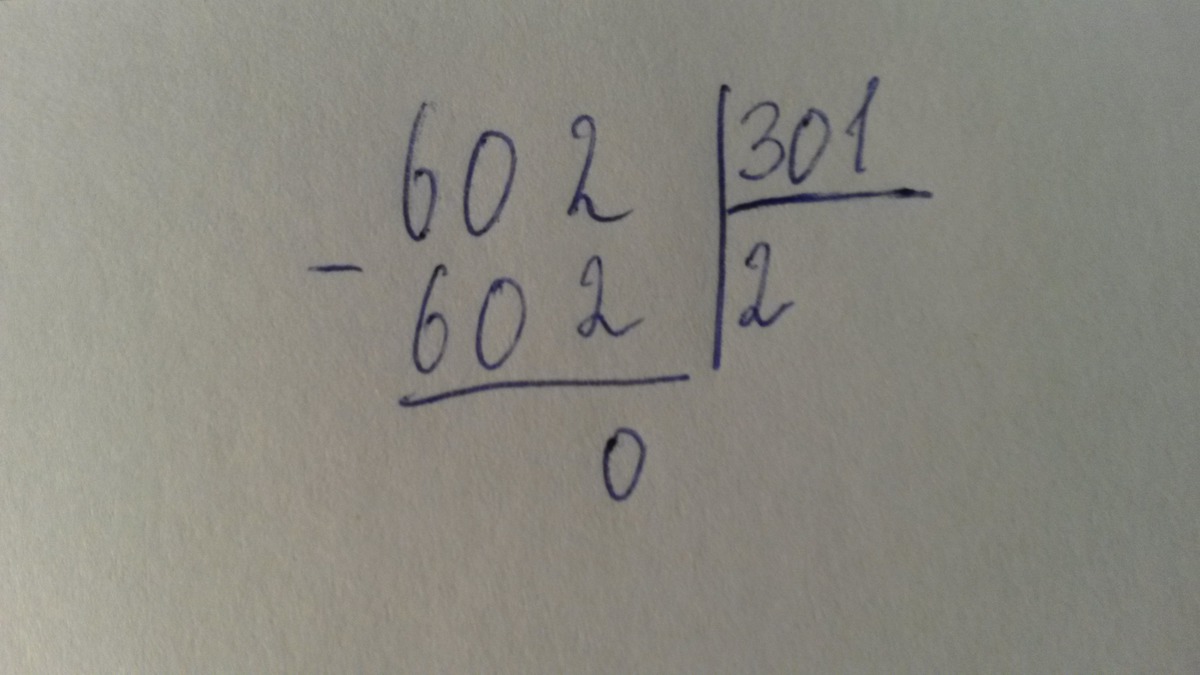 602 301
- 602 2
0